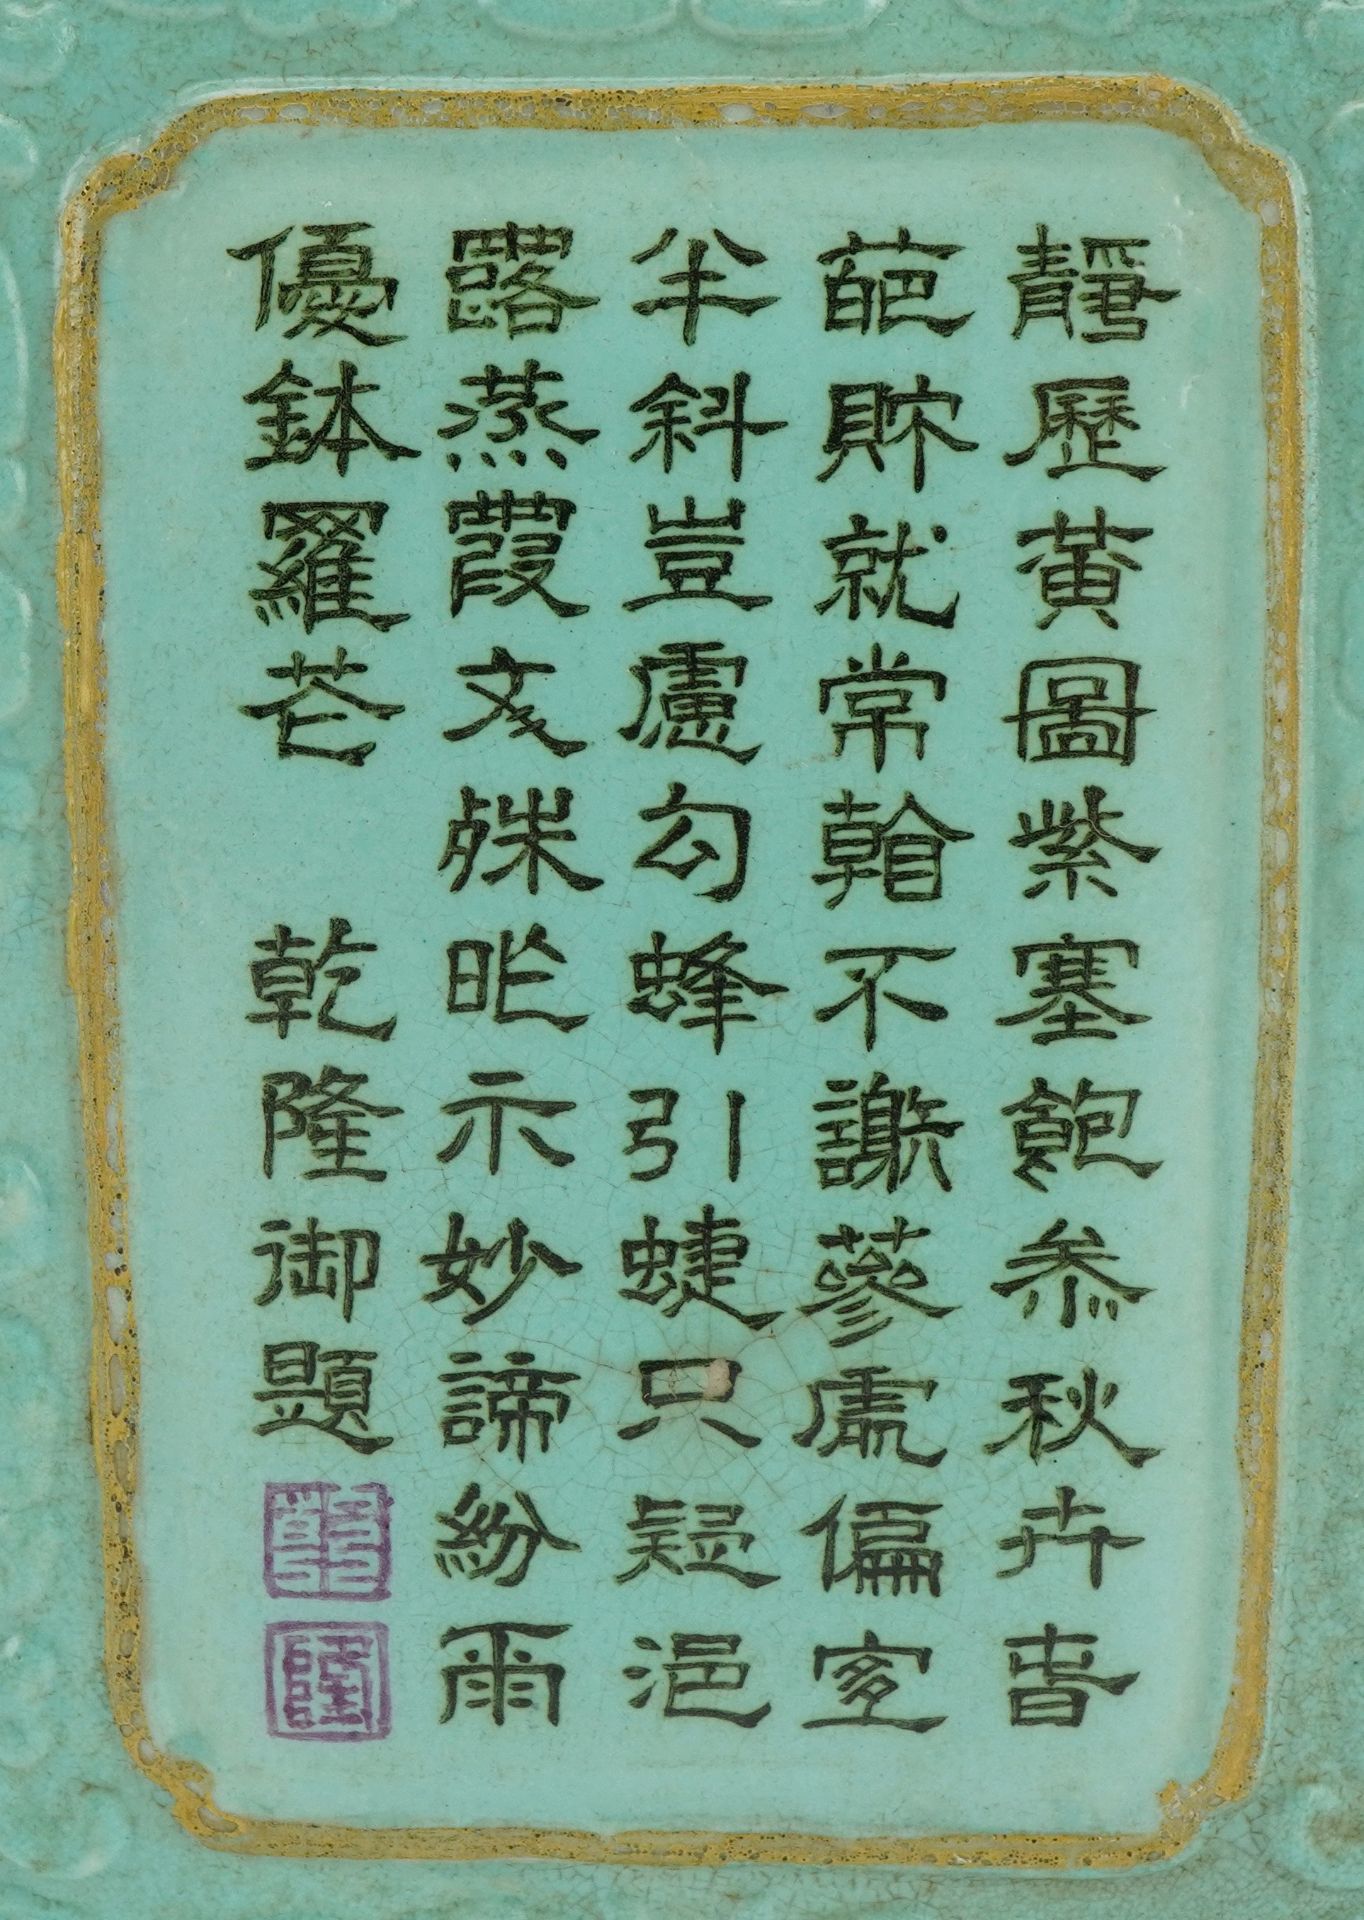 靜歷黃圖紫塞飽叅秋卉春
葩貯就常看不謝蔘處偏宜
半斜豈慮勾蜂引蜨只疑浥
露蒸霞文殊昨示妙諦紛雨
優鉢羅花 乾隆御題
乾
隆